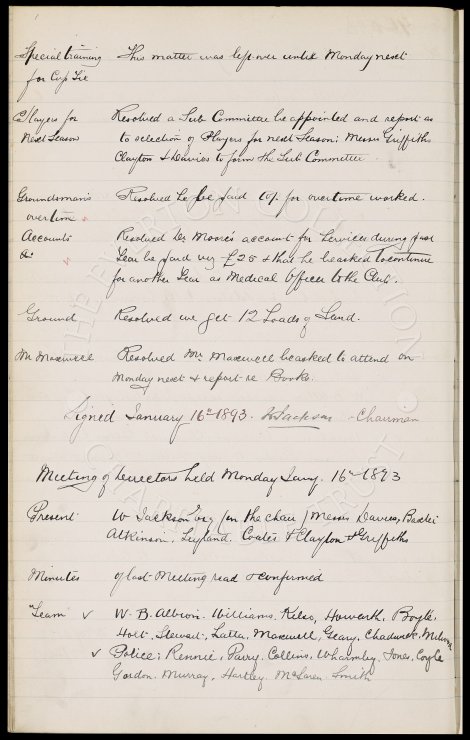 Special training This matter was left over until Monday next
for Cup Tie
Players for Resolved a Sub Committee be appointed and report as
Next Season to selection of Players for next Season: Messrs Griffiths
Clayton & Davies to form the Sub Committee
Groundsman's Resolved he be paid for overtime worked.
overtime
Accounts Resolved Dr Moore's account for Services during past
Year be paid viz £25 & that he be asked to continue
for another Year as Medical Officer to the Club.
Ground Resolved we get 12 Loads of Sand.
Mr Maxwell Resolved Mr Maxwell be asked to attend on
Monday next & report re Books.
Signed January 16th 1893. W Jackson Chairman
Meeting of Directors held Monday Jany. 16th 1893
Present W Jackson Esq (in the chair) Messrs Davies, Baxter
Atkinson, Leyland, Coates & Clayton & Griffiths
Minutes of last Meeting read & confirmed
"Team" ✓ W. B. Albion. Williams, Kelso, Howarth, Boyle,
Holt, Stewart, Latta, Maxwell, Geary, Chadwick, Milward
✓ Police: Rennie, Parry, Collins, Wharmby, Jones, Coyle
Gordon, Murray, Hartley, McLaren, Smith
THE EVERTON COLLECTION
CHARITABLE TRUST